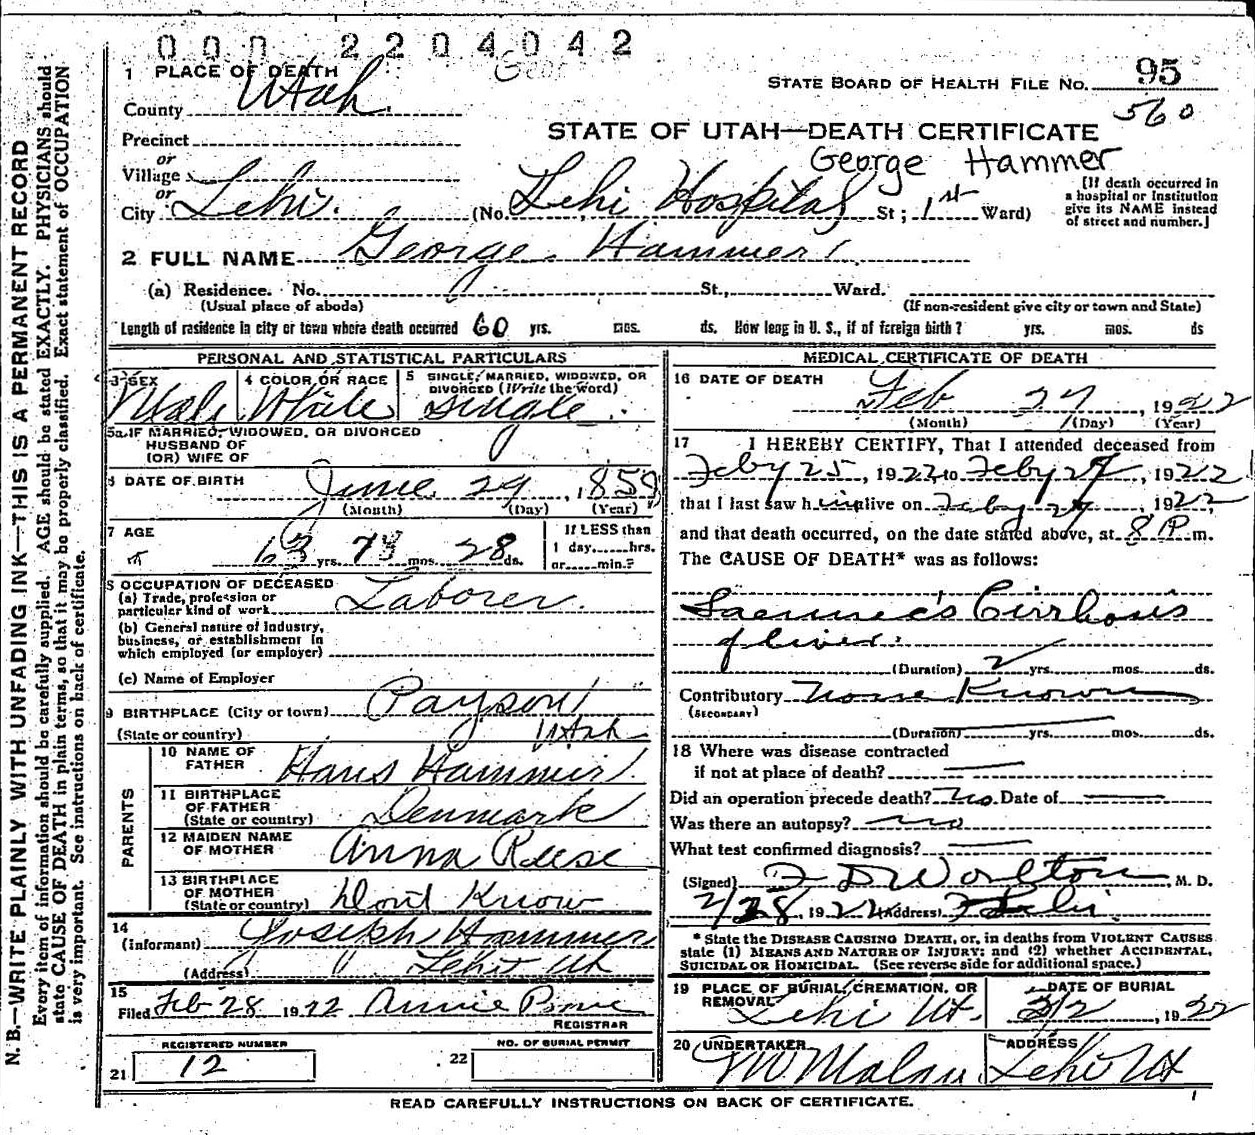 0 0 0 2 2 0 4 0 4 2
1 PLACE OF DEATH
STATE BOARD OF HEALTH FILE No. 95
County Utah
560
Precinct
STATE OF UTAH—DEATH CERTIFICATE
or
George Hammer
Village
or
City Lehi. (No. Lehi Hospital St; 1st Ward)
[If death occurred in
a hospital or Institution
give its NAME instead
of street and number.]
2 FULL NAME George Hammer
(a) Residence. No. St., Ward.
(Usual place of aboda) (If non-resident give city or town and State)
Length of residence in city or town where death occurred 60 yrs. mos. ds. How long in U. S., if of foreign birth? yrs. mos. ds
PERSONAL AND STATISTICAL PARTICULARS
3 SEX
Male
4 COLOR OR RACE
White
5 SINGLE, MARRIED, WIDOWED, OR
DIVORCED (Write the word)
Single
5a IF MARRIED, WIDOWED, OR DIVORCED
HUSBAND OF
(OR) WIFE OF
6 DATE OF BIRTH June 29, 1858
(Month) (Day) (Year)
7 AGE
63 yrs. 7 mos. 28 ds.
If LESS than
1 day......hrs.
or......min.?
8 OCCUPATION OF DECEASED
(a) Trade, profession or
particular kind of work Laborer.
(b) General nature of Industry,
business, or establishment in
which employed (or employer)
(c) Name of Employer
9 BIRTHPLACE (City or town) Payson
(State or country) Utah
PARENTS
10 NAME OF
FATHER Hans Hammer
11 BIRTHPLACE
OF FATHER
(State or country) Denmark
12 MAIDEN NAME
OF MOTHER Anna Reese
13 BIRTHPLACE
OF MOTHER
(State or country) Dont Know
14
(Informant) Joseph Hammer
(Address) Lehi Ut
15
Filed Feb 28 1922 Annie
REGISTRAR
REGISTERED NUMBER
21 12
NO. OF BURIAL PERMIT
22
MEDICAL CERTIFICATE OF DEATH
16 DATE OF DEATH
Feb 27, 1922
(Month) (Day) (Year)
17 I HEREBY CERTIFY, That I attended deceased from
Feby 25, 1922 to Feby 27, 1922
that I last saw h im alive on Feby 27 1922,
and that death occurred, on the date stated above, at 8 P m.
The CAUSE OF DEATH* was as follows:
Laennec's Cirrhosis
of liver.
(Duration) 2 yrs. mos. ds.
Contributory None Known
(SECONDARY)
(Duration) yrs. mos. ds.
18 Where was disease contracted
if not at place of death?
Did an operation precede death? No. Date of
Was there an autopsy? no
What test confirmed diagnosis?
(Signed) F D Worlton, M. D.
2/28, 1922 (Address) Lehi.
* State the DISEASE CAUSING DEATH, or, in deaths from VIOLENT CAUSES
state (1) MEANS AND NATURE OF INJURY; and (2) whether ACCIDENTAL,
SUICIDAL OR HOMICIDAL. (See reverse side for additional space.)
19 PLACE OF BURIAL, CREMATION, OR
REMOVAL Lehi Ut.
DATE OF BURIAL
3/2, 1922
20 UNDERTAKER
Malan
ADDRESS
Lehi Ut
READ CAREFULLY INSTRUCTIONS ON BACK OF CERTIFICATE.
N. B.—WRITE PLAINLY WITH UNFADING INK—THIS IS A PERMANENT RECORD
Every item of information should be carefully supplied. AGE should be stated EXACTLY. PHYSICIANS should
state CAUSE OF DEATH in plain terms, so that it may be properly classified. Exact statement of OCCUPATION
is very important. See instructions on back of certificate.